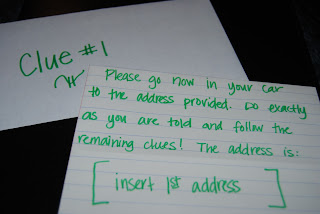 Clue #1
Please go now in your car
to the address provided. Do exactly
as you are told and follow the
remaining clues! The address is:
[insert 1st address]